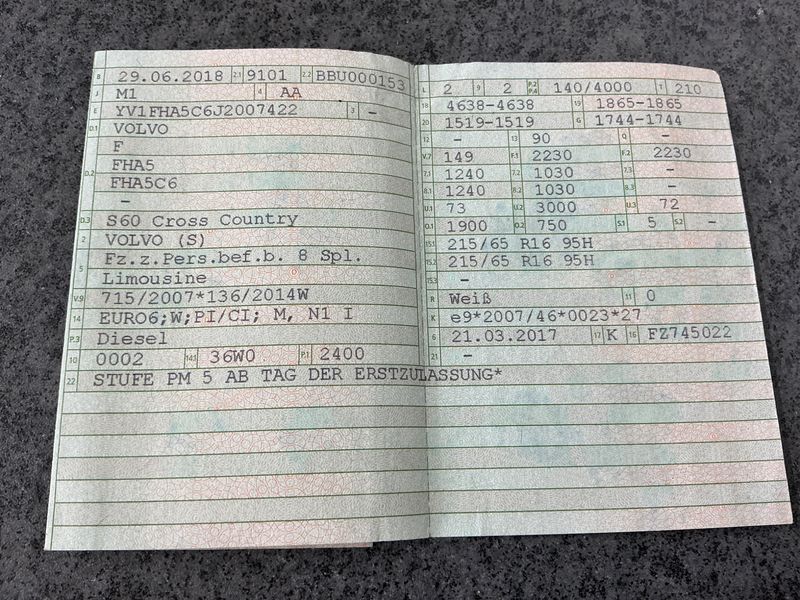 B 29.06.2018 2.1 9101 2.2 BBU000153
J M1 4 AA
E YV1FHA5C6J2007422 3 –
D.1 VOLVO
F
D.2 FHA5
FHA5C6
–
D.3 S60 Cross Country
2 VOLVO (S)
5 Fz.z.Pers.bef.b. 8 Spl.
Limousine
V.9 715/2007*136/2014W
14 EURO6;W;PI/CI; M, N1 I
P.3 Diesel
10 0002 14.1 36W0 P.1 2400
22 STUFE PM 5 AB TAG DER ERSTZULASSUNG*
L 2 9 2 P.2 P.4 140/4000 T 210
18 4638–4638 19 1865–1865
20 1519–1519 G 1744–1744
12 – 13 90 Q –
V.7 149 F.1 2230 F.2 2230
7.1 1240 7.2 1030 7.3 –
8.1 1240 8.2 1030 8.3 –
U.1 73 U.2 3000 U.3 72
O.1 1900 O.2 750 S.1 5 S.2 –
15.1 215/65 R16 95H
15.2 215/65 R16 95H
15.3 –
R Weiß 11 0
K e9*2007/46*0023*27
6 21.03.2017 17 K 16 FZ745022
21 –